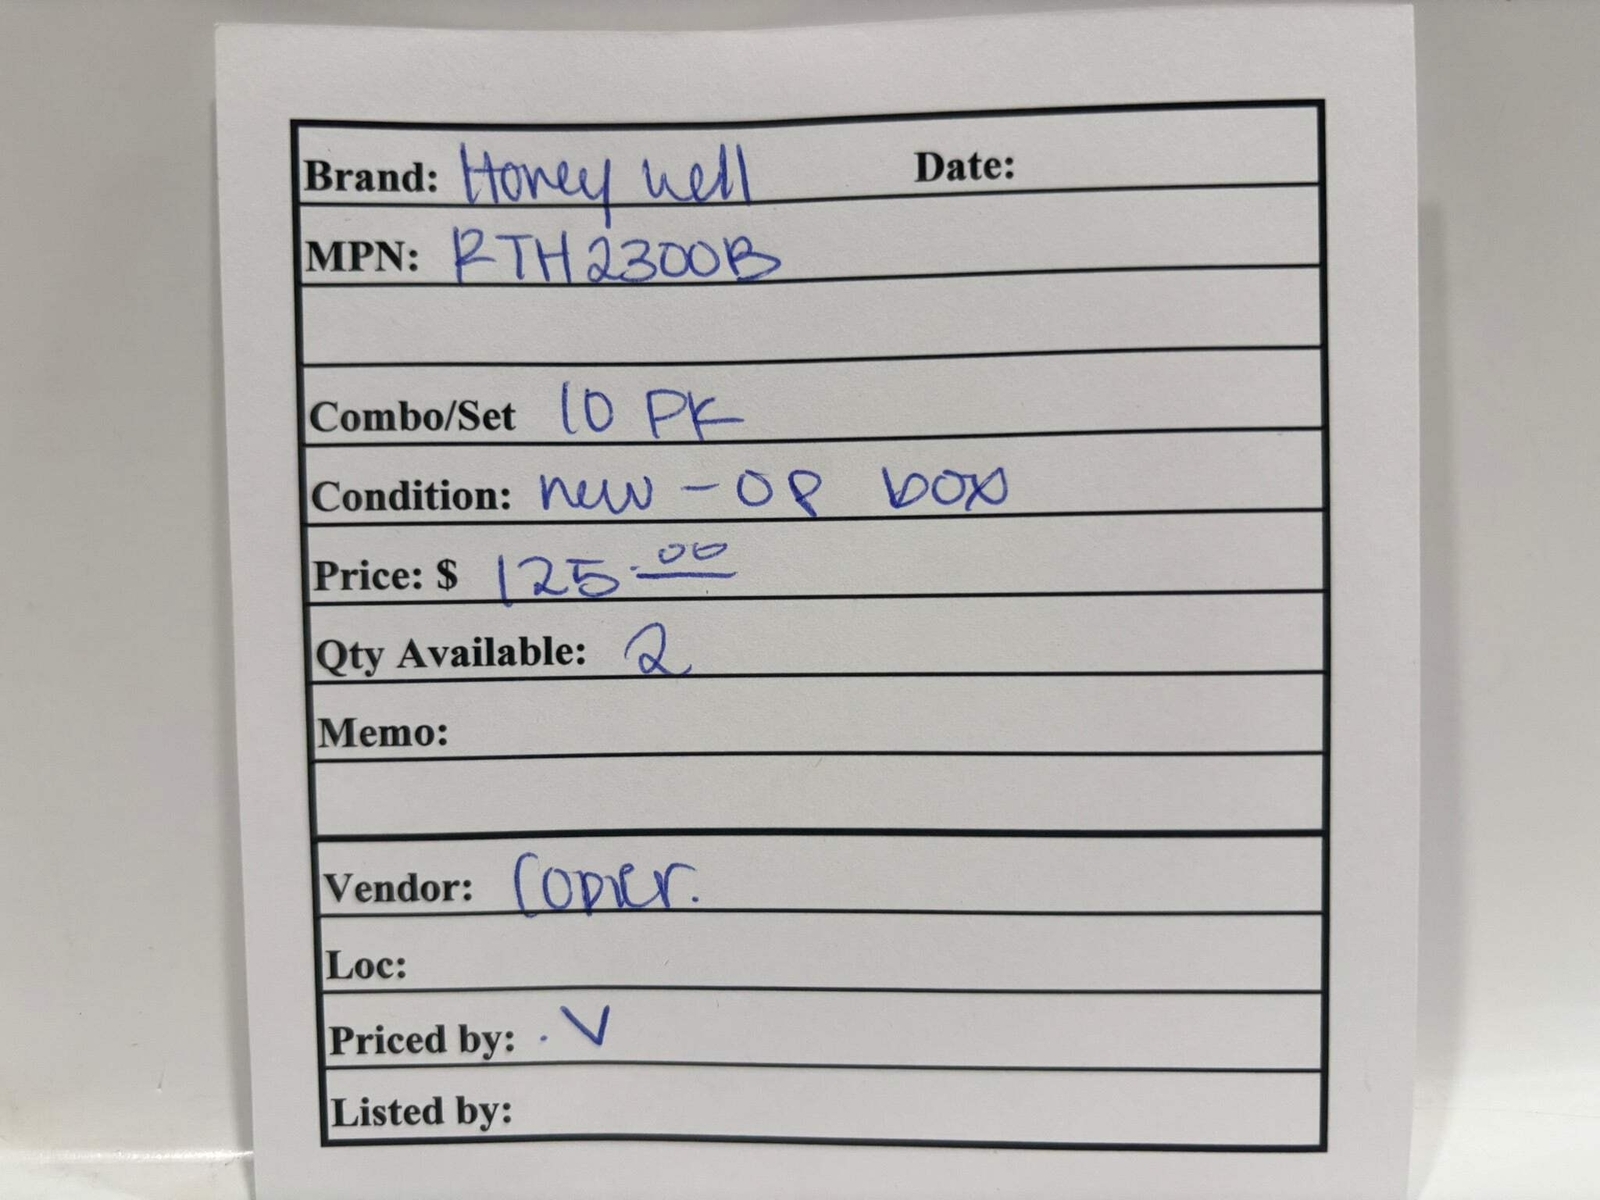 Brand: Honey well Date:
MPN: RTH2300B
Combo/Set 10 PK
Condition: new - OP box
Price: $ 125.00
Qty Available: 2
Memo:
Vendor: Copier.
Loc:
Priced by: . V
Listed by: